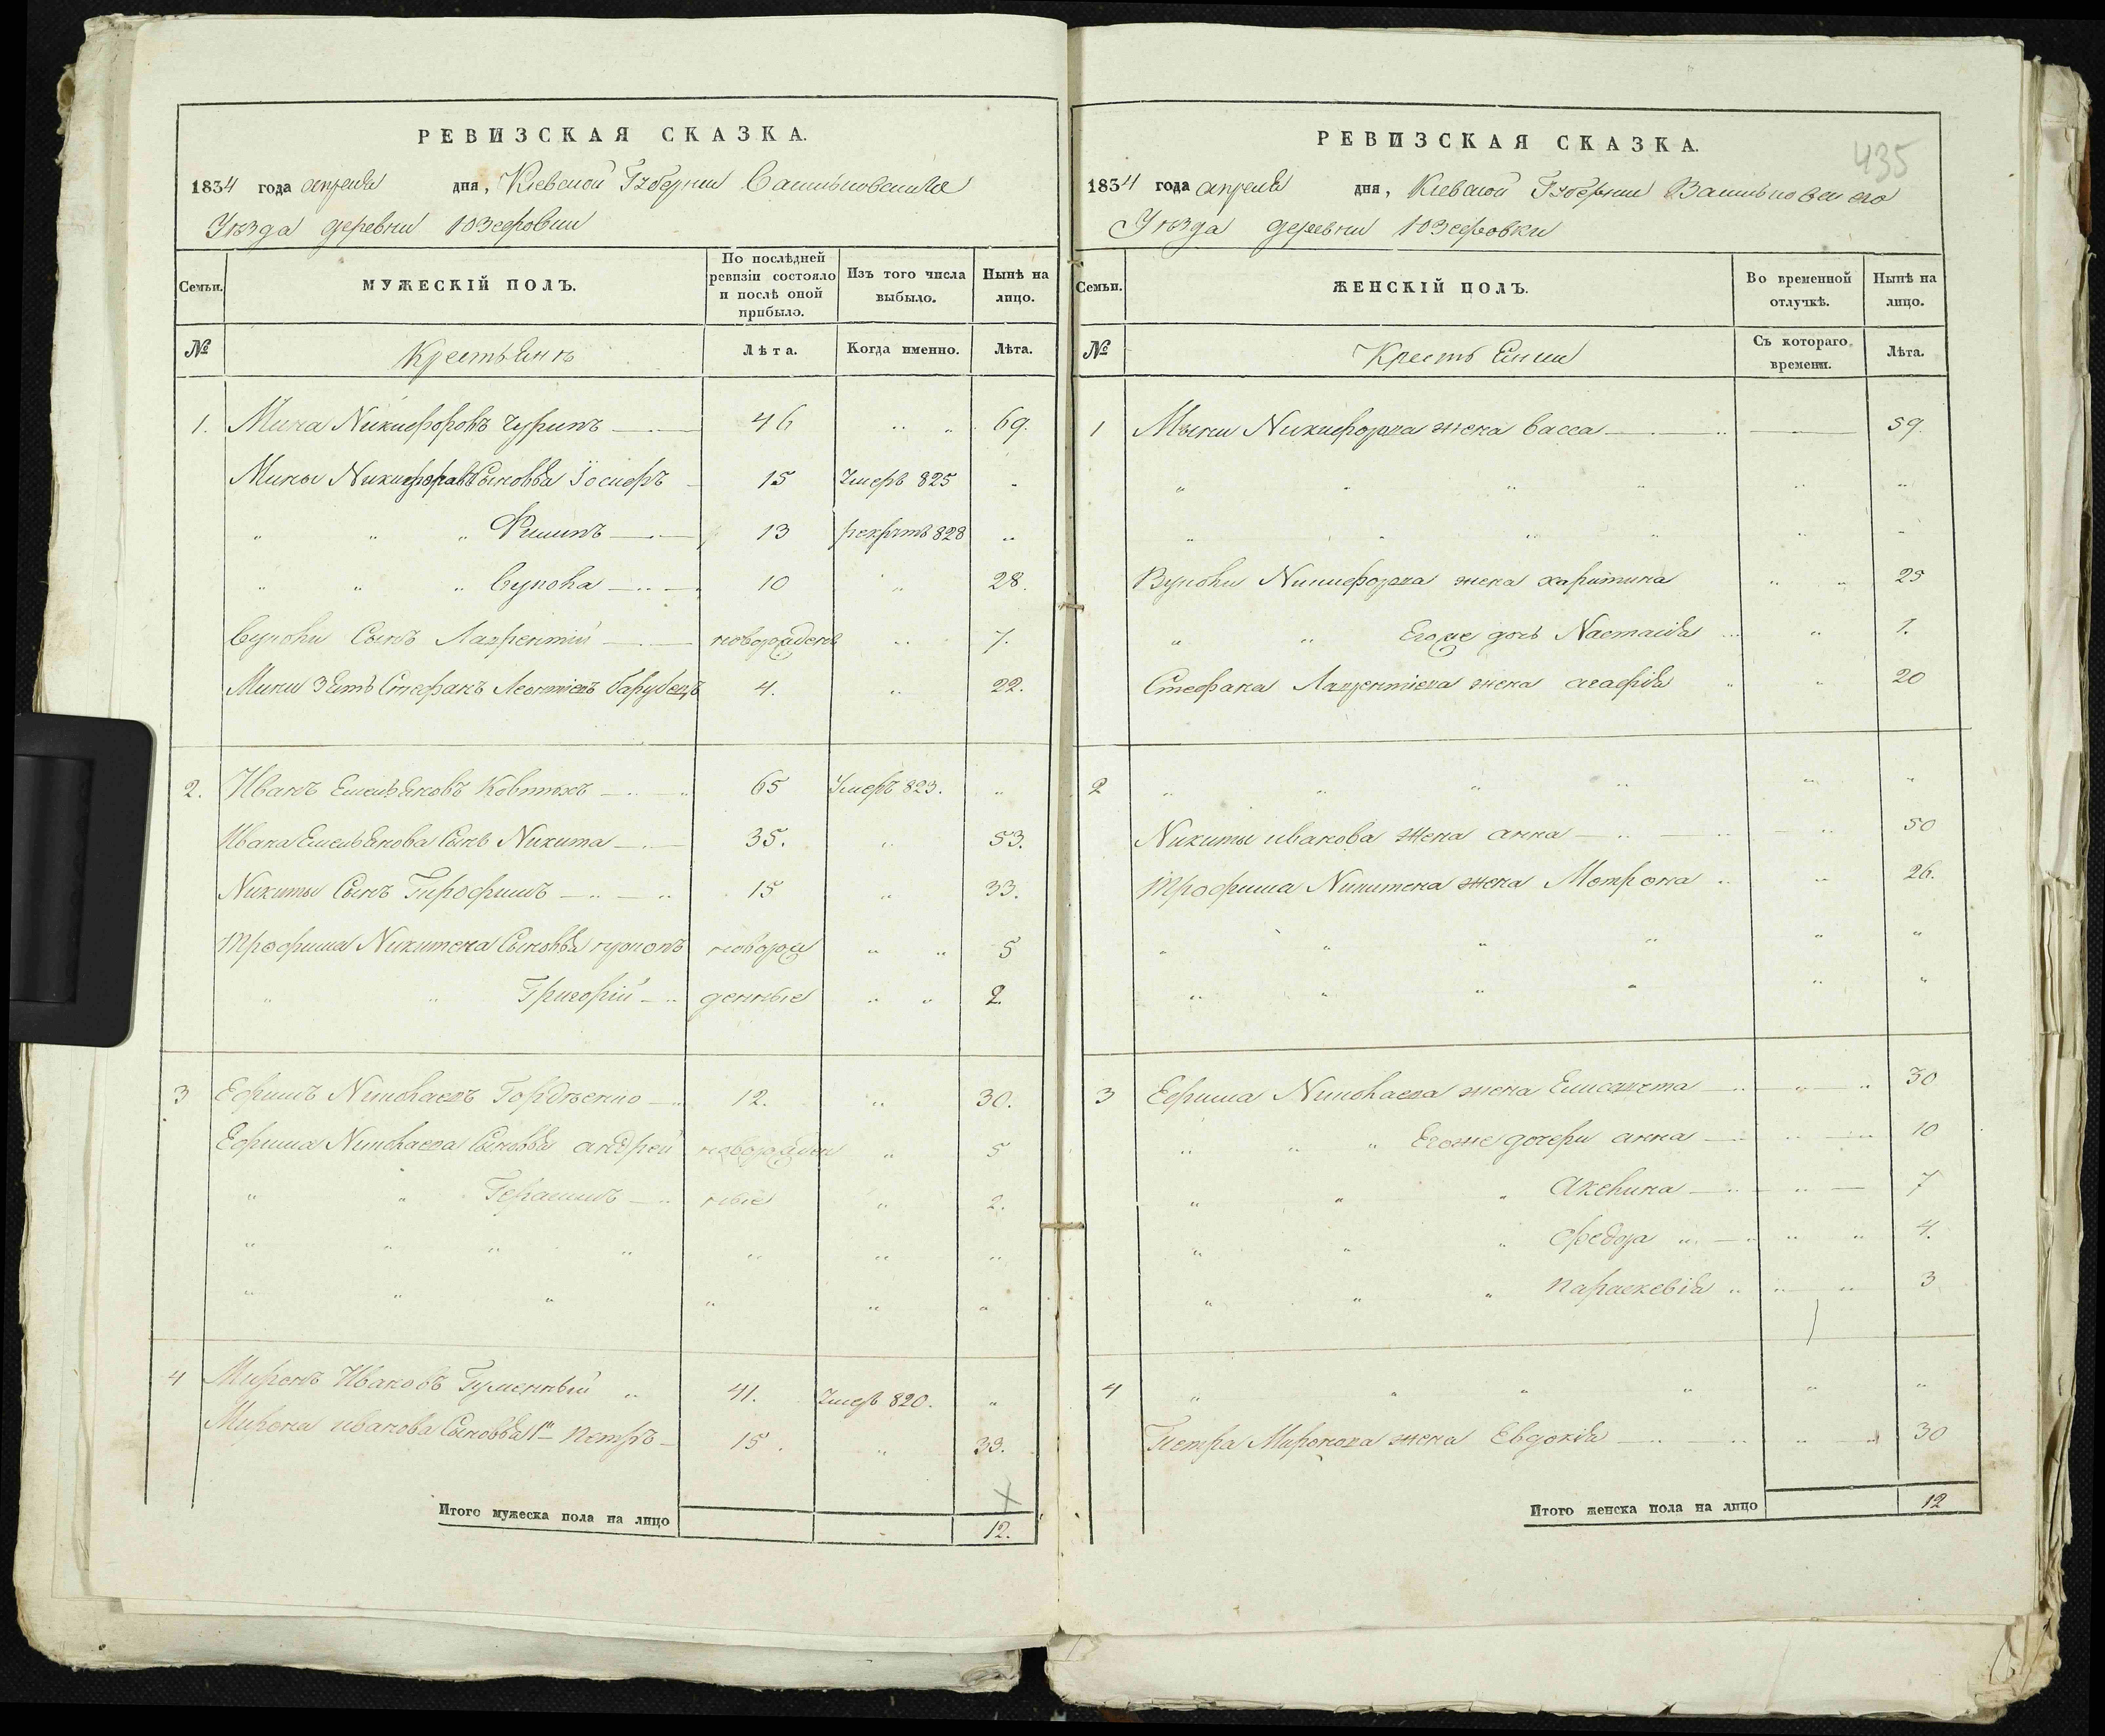 РЕВИЗСКАЯ СКАЗКА.
1834 года апреля дня, Кіевской Губерніи Васильковскаго
Уѣзда деревни Юзефовки
Семьи. МУЖЕСКІЙ ПОЛЪ. По послѣдней ревизіи состояло и послѣ оной прибыло. Изъ того числа выбыло. Нынѣ на лицо.
№ Крестьянъ Лѣта. Когда именно. Лѣта.
1. Мина Никифоровъ 46 " " 69.
Мины Никифорова Сыновья Іосифъ 15 Умеръ 825 "
" " " Филипъ 13 рекрутъ 828 "
" " " Вукола 10 " 28.
Вуколы Сынъ Лаврентій новорожденъ " 7.
Мины Зять Стефанъ Леонтіевъ 4. " 22.
2. Иванъ Емельяновъ Ковтюхъ 65 Умеръ 823. "
Ивана Емельянова Сынъ Никита 35. " 53.
Никиты Сынъ Трофимъ 15 " 33.
Трофима Никитена Сыновья новорож " " 5
" " Григорій денные " " 2.
3 Ефимъ Николаевъ Гордѣенко 12. " 30.
Ефима Николаева Сыновья андрей новорожден " 5
" " Герасимъ ные " 2.
" " " " " " "
" " " " " "
4 Миронъ Ивановъ Гуменный " 41. Умеръ 820. "
Мирона иванова Сыновья 1й петръ 15. " 33.
Итого мужеска пола на лицо 12.
435
РЕВИЗСКАЯ СКАЗКА.
1834 года апреля дня, Кіевской Губерніи Васильковскаго
Уѣзда деревни Юзефовки
Семьи. ЖЕНСКІЙ ПОЛЪ. Во временной отлучкѣ. Нынѣ на лицо.
№ Крестьянки Съ котораго времени. Лѣта.
1 Мины Никифорова жена васса 59.
" " " " " "
" " " " " "
Вуколы Никифорова жена харитина " " 25
" " Егоже дочь Настасія " 1.
Стефана Лаврентіева жена агафія " " 20
2 " " " " " "
Никиты иванова жена анна " 50
Трофима Никитена жена Мотрона " " 26.
" " " " " "
" " " " " "
3 Ефима Николаева жена Елисавета " " 30
" " " Егоже дочери анна " 10
" " " Акелина " 7
" " " федора " " " 4.
" " " параскевія " " " 3
4 " " " " " "
Петра Миронова жена Евдокія " " 30
Итого женска пола на лицо 12